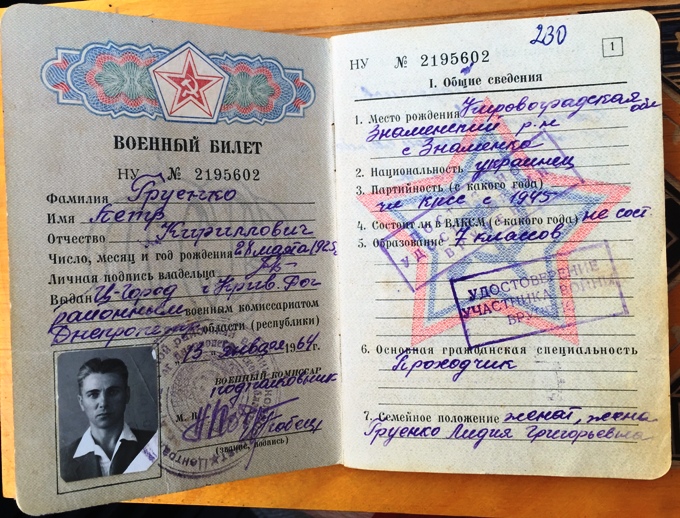 ВОЕННЫЙ БИЛЕТ
НУ № 2195602
Фамилия Груенко
Имя Петр
Отчество Кириллович
Число, месяц и год рождения 28 марта 1925г
Личная подпись владельца
Выдан Ц-Город г Крив. Рог
районным военным комиссариатом
Днепропетр области (республики)
13 января 1964г.
ВОЕННЫЙ КОМИССАР
подполковник
М. П.
(звание, подпись)
230
НУ № 2195602
1
I. Общие сведения
1. Место рождения Кировоградская обл
Знаменский р-н
с Знаменка
2. Национальность украинец
3. Партийность (с какого года)
чл КПСС с 1945
4. Состоял ли в ВЛКСМ (с какого года) не сост
5. Образование 7 классов
УДОСТОВЕРЕНИЕ
УЧАСТНИКА ВОЙНЫ
6. Основная гражданская специальность
Проходчик
7. Семейное положение женат, жена
Груенко Лидия Григорьевна